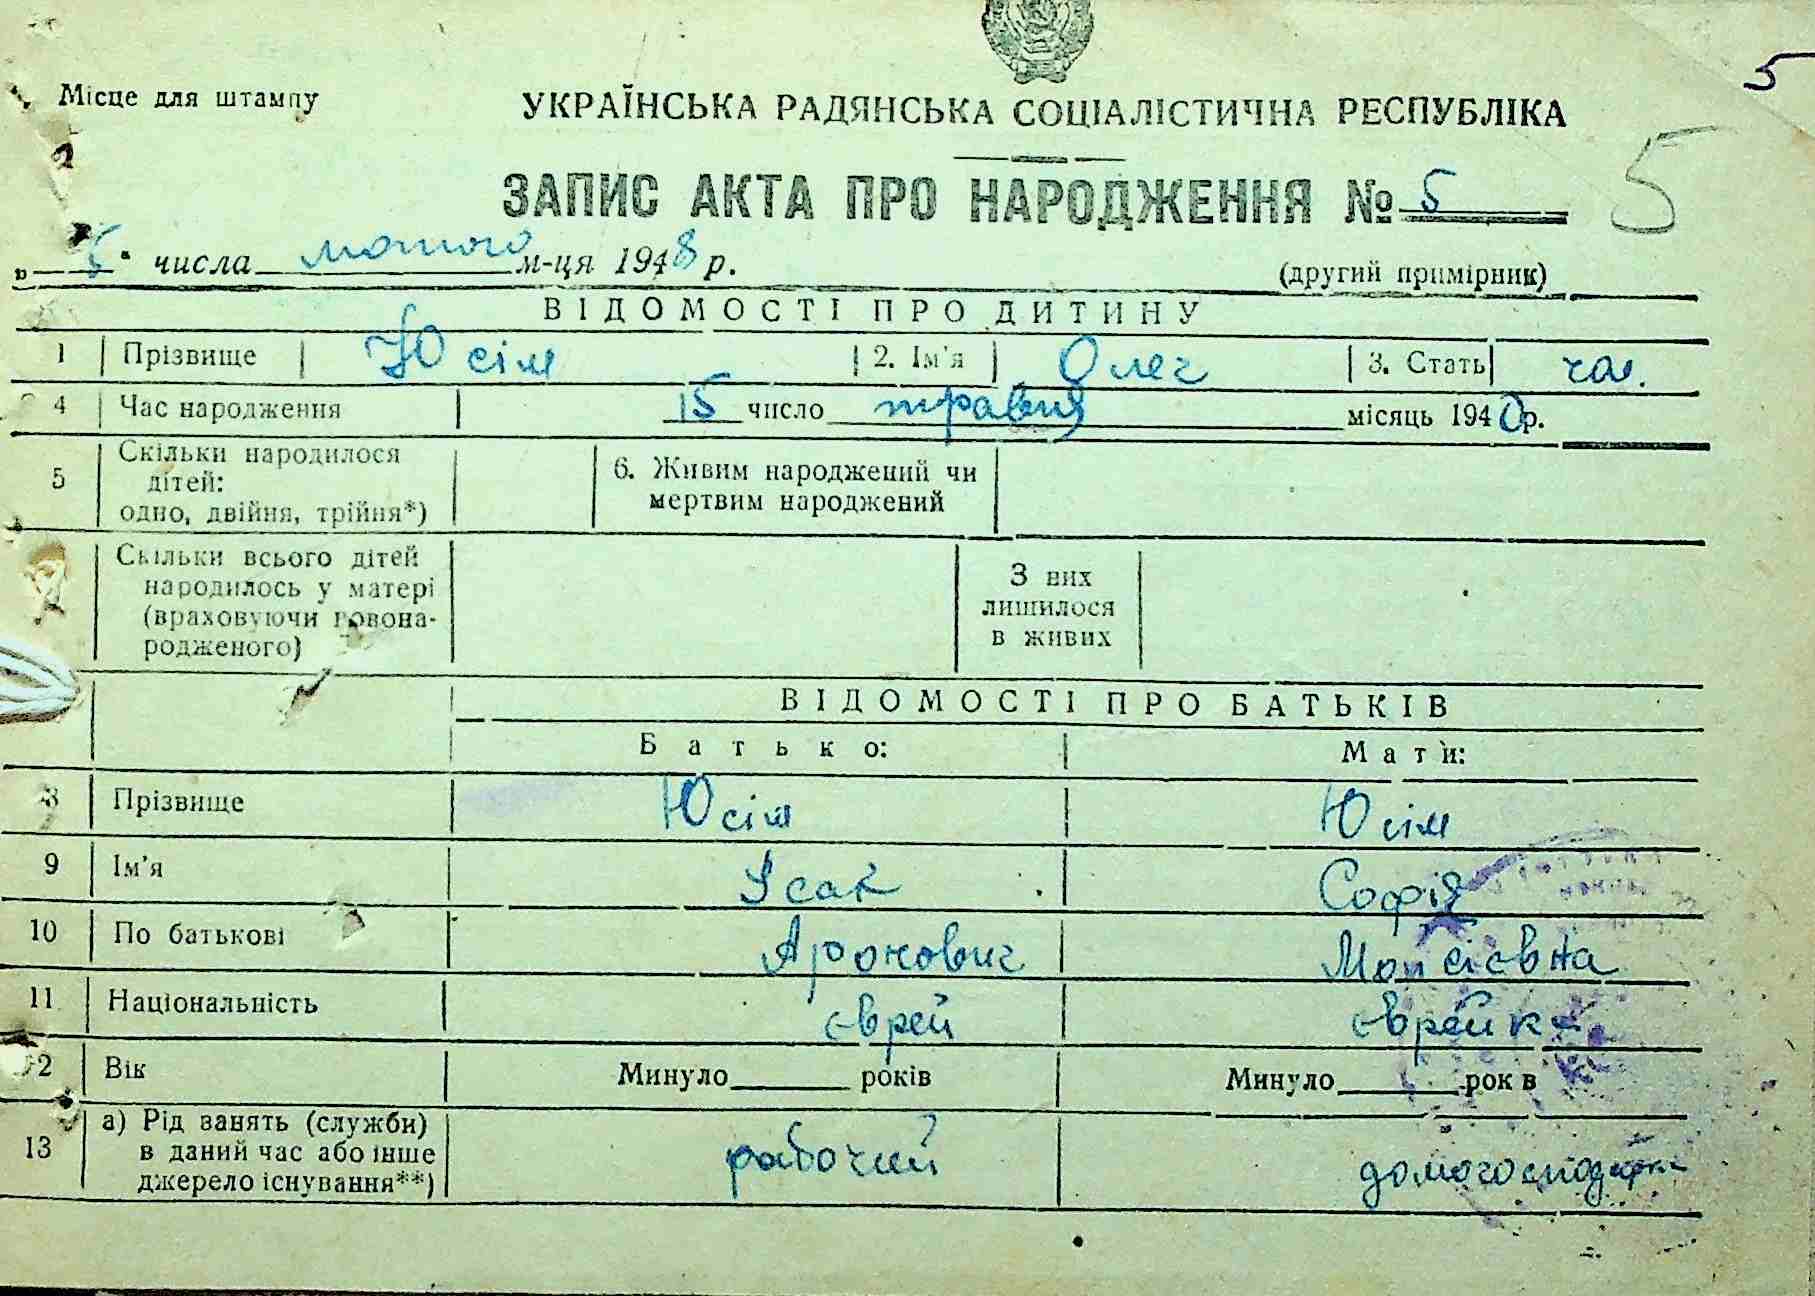 5
Місце для штампу
УКРАЇНСЬКА РАДЯНСЬКА СОЦІАЛІСТИЧНА РЕСПУБЛІКА
ЗАПИС АКТА ПРО НАРОДЖЕННЯ № 5
5
„ 5 " числа лютого м-ця 1948 р.
(другий примірник)
ВІДОМОСТІ ПРО ДИТИНУ
1 Прізвище Юсім 2. Ім'я Олег 3. Стать чол.
4 Час народження 15 число травня місяць 1940 р.
5 Скільки народилося дітей: одно, двійня, трійня*) 6. Живим народжений чи мертвим народжений
Скільки всього дітей народилось у матері (враховуючи новона-родженого) З них лишилося в живих
ВІДОМОСТІ ПРО БАТЬКІВ
Батько: Мати:
8 Прізвище Юсім Юсім
9 Ім'я Ісак Софія
10 По батькові Аронович Мойсієвна
11 Національність єврей єврейка
12 Вік Минуло років Минуло років
13 а) Рід занять (служби) в даний час або інше джерело існування**) рабочий домогосподарка